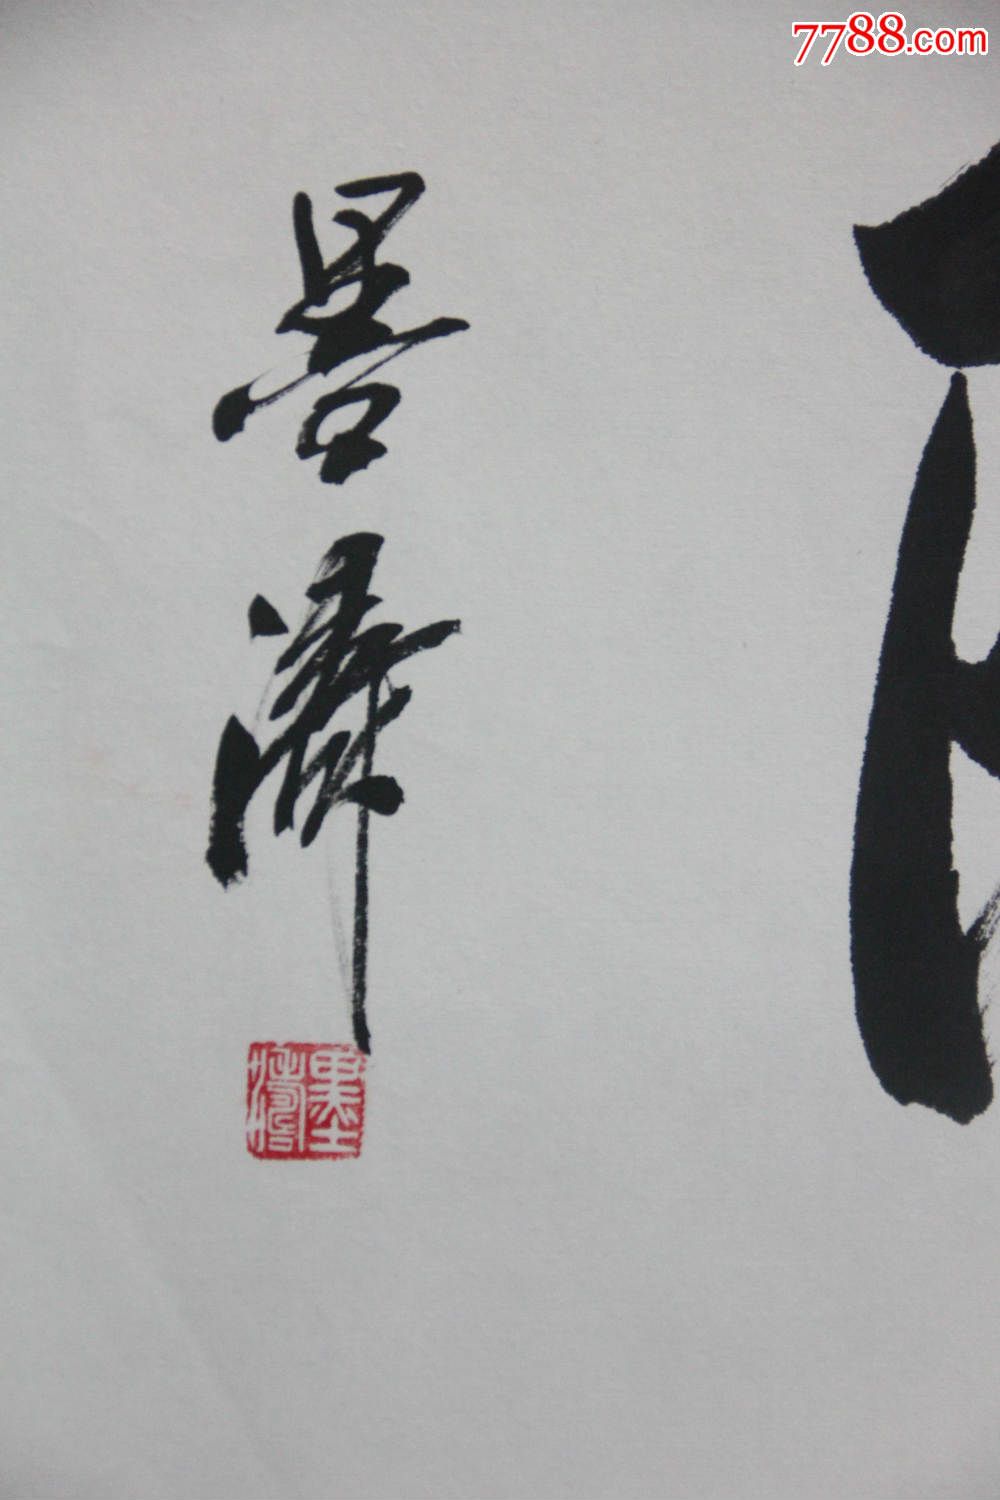 7788.com
墨
濤
墨濤